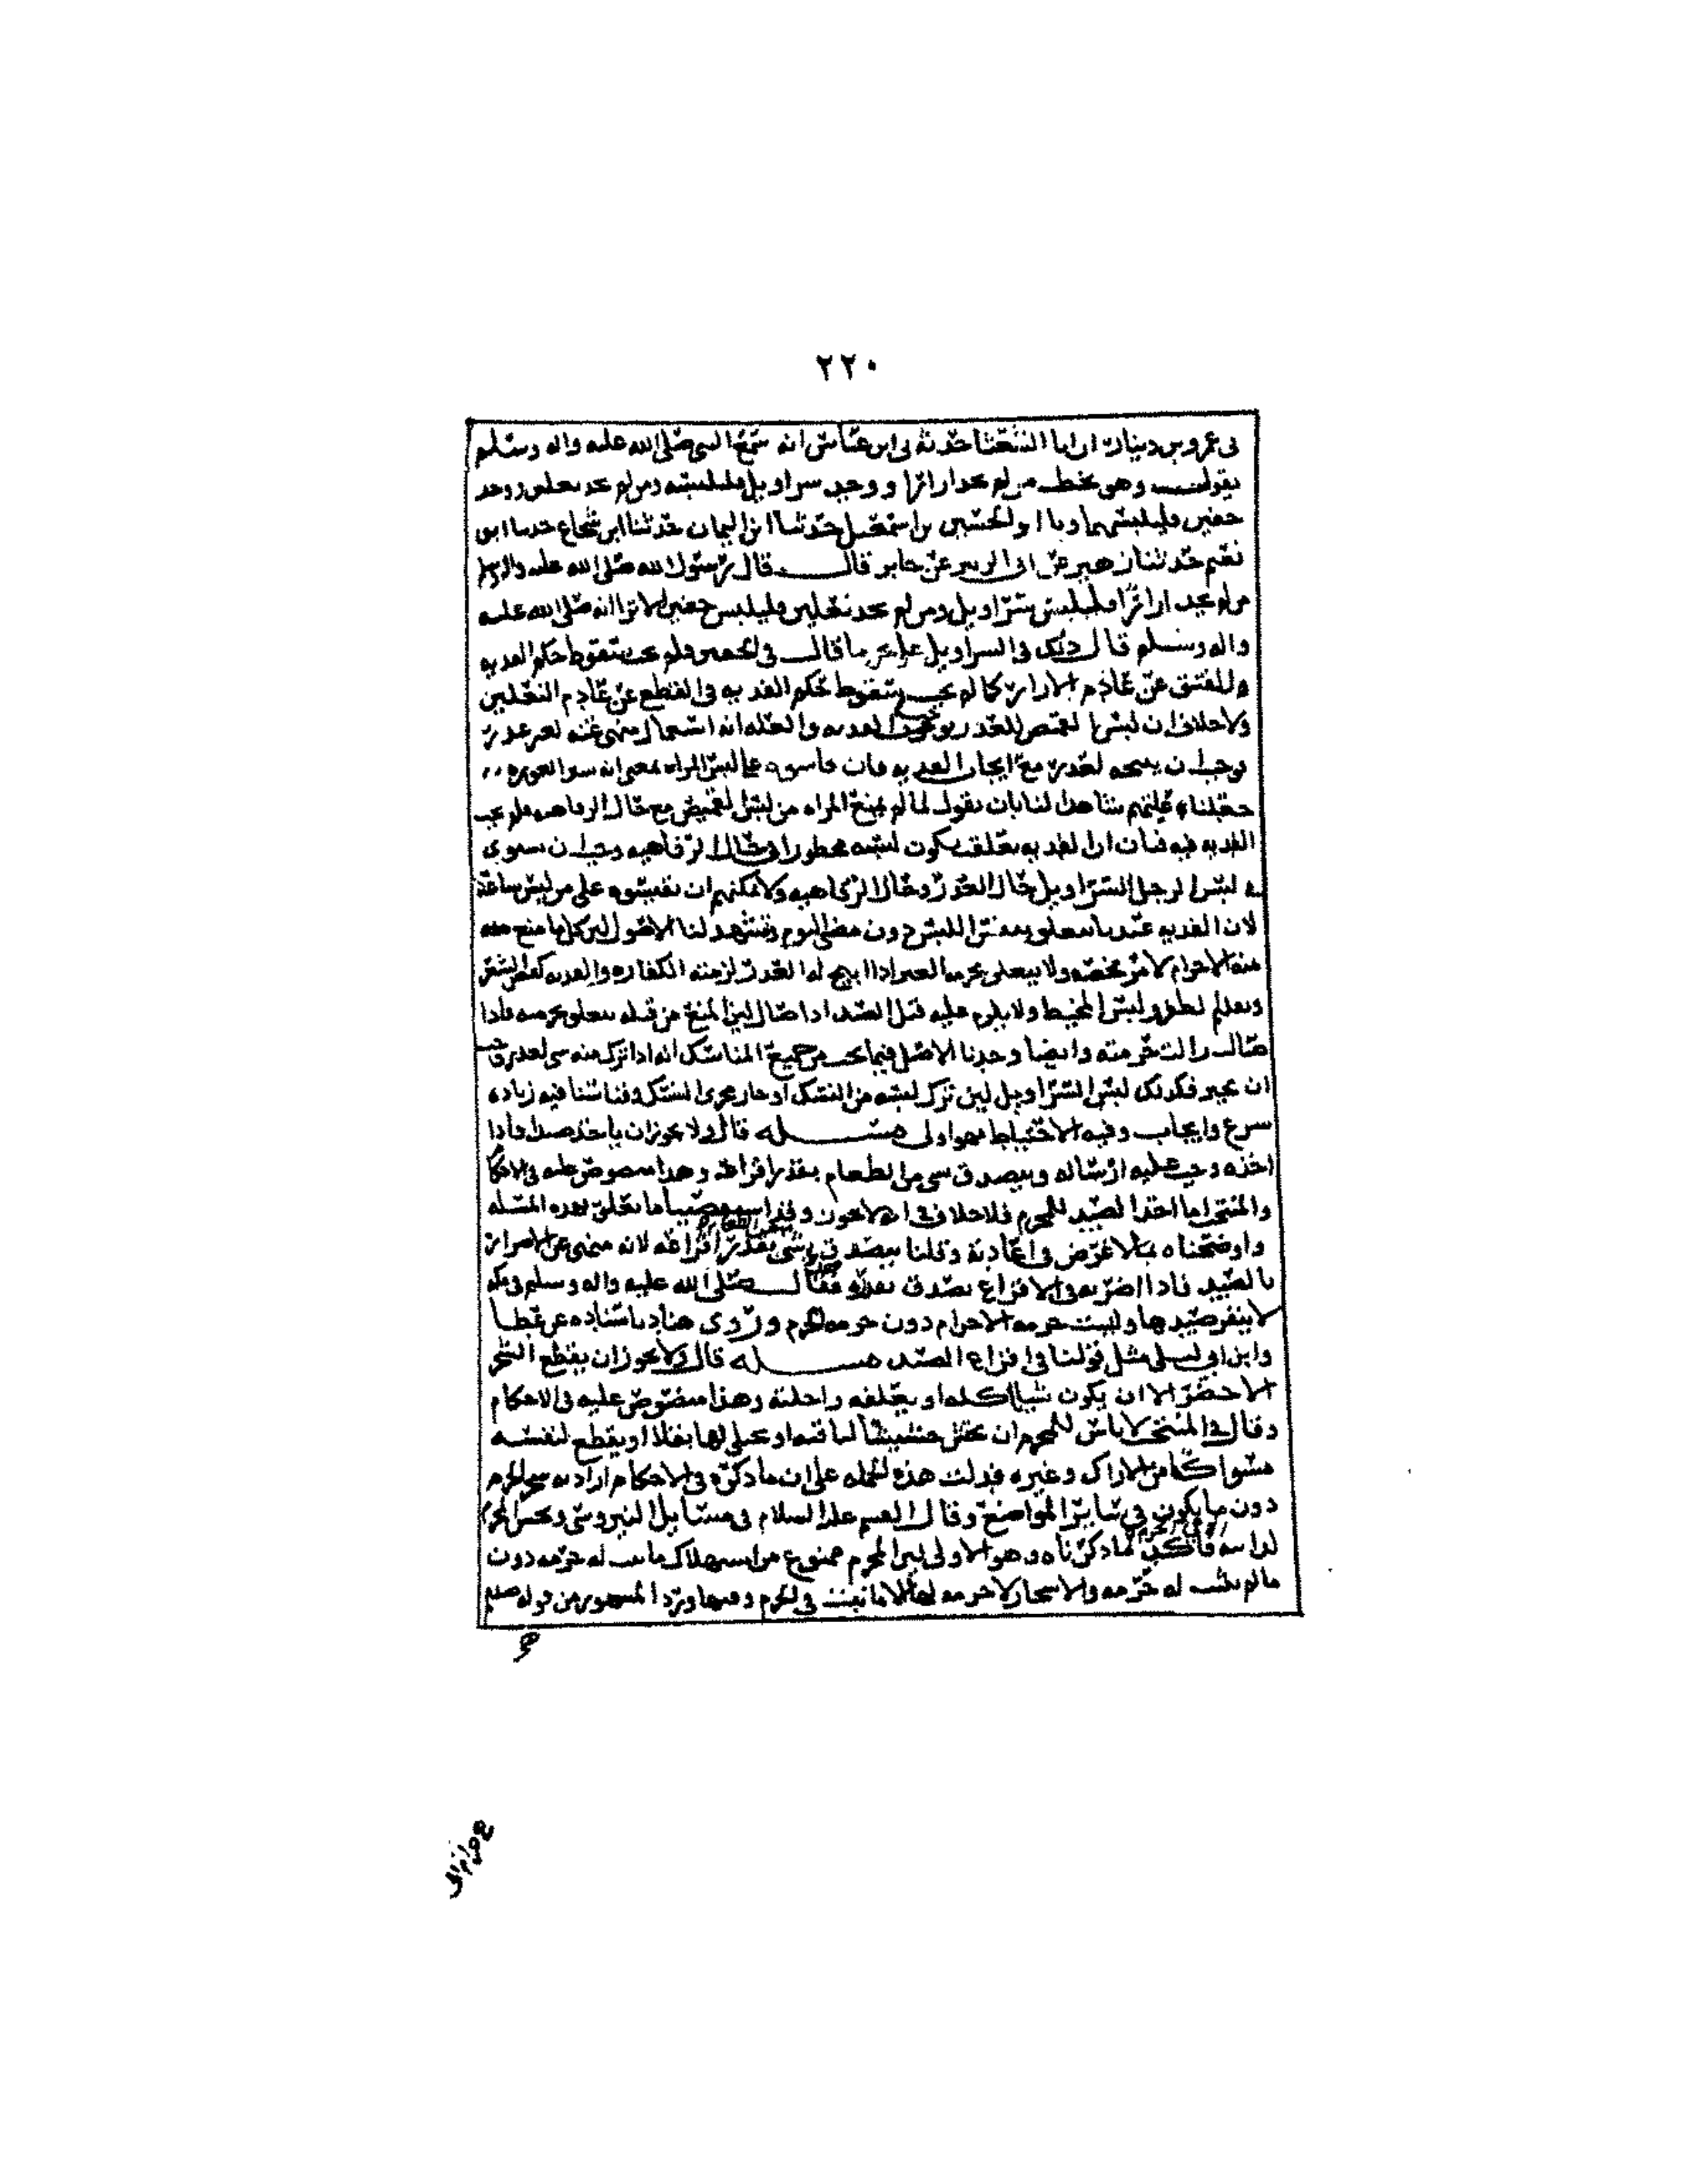 ٢٢٠
ني عمرو بن دينار ان ابا الشعثا حدثه ابن عباس انه سمع النبي صلى الله عليه واله وسلم
يقول وهو يخطب من لم يجد ازارا ووجد سراويل فليلبسه ومن لم يجد نعلين ووجد
خفين فليلبسهما ابو الحسين بن اسمعيل حدثنا ابن اليمان حدثنا ابن شجاع حدثنا ابو
نعيم حدثنا زهير عن ابي الزبير عن جابر قال قال رسول الله صلى الله عليه واله وسلم
من لم يجد ازارا فليلبس سراويل ومن لم يجد نعلين فليلبس خفين الا ترا انه صلى الله عليه
واله وسلم قال ذلك في السراويل على ما قال في الخفين فلم يجب سقوط حكم الفديه
عن عادم الازار كما لم يجب سقوط حكم الفديه في القطع عن عادم النعلين
ولا خلاف ان لبس القميص للعذر يوجب الفديه والعله انه استعمال منهي عنه لغير عذر
فوجب ان يبيحه لعذر مع ايجاب الفديه فان قاسوه على لبس المراه بمعنى انه ستر العوره
لنا بان نقول لما لم يمنع المراه من لبس القميص مع حال الرفاهيه فلم يجب
الفديه فيه فبان ان الفديه تعلقت بكون لبسه محظورا في حال الرفاهيه وجب ان يستوي
لبس الرجل السراويل حال العذر وحال الرفاهيه ولا يمكنهم ان يقيسوه على من لبس ساعة
لان الفديه عندنا تتعلق اللبس دون مضي اليوم وتشهد لنا الاصول لان كل ما منع منه
منه الاحرام لامر يخصه ولا يتعلق بحرمة الغير اذا ابيح له العذر لزمته الكفاره والفديه كحلق الشعر
ولبس المخيط ولا يلزم عليه قتل الصيد اذا صال لان المنع من قتله يتعلق بحرمته فاذا
صال زالت حرمته وايضا وجدنا الاصل فيما يجب من جميع المناسك انه اذا ترك منه شي لعذر وجب
ان يجبر فكذلك لبس السراويل لان ترك لبسه من النسك او جار مجرى النسك وقياسنا فيه زياده
شرع وايجاب وفيه الاحتياط فهو اولى مسئله قال ولا يجوز ان ياخذ صيدا فاذا
اخذه وجب عليه ارساله ويتصدق بشي من الطعام بقدر افزاعه وهذا منصوص عليه في الاحكام
والمنتخب اما اخذ الصيد للمحرم فلا خلاف في انه لا يجوز وقد استقصينا ما تعلق بهذه المسئله
واوضحناه فلا غرض في اعادته وقلنا يتصدق بشي من الطعام بقدر افزاعه لانه منهي عن الاضرار
بالصيد فاذا اضر به في الافزاع تصدق بقدره فقد قال صلى الله عليه واله وسلم في مكه
لا ينفر صيدها وليست حرمه الاحرام دون حرمه الحرم وروى هناد باسناده عن عطا
وابن ابي ليلى مثل قولنا في افزاع الصيد مسئله قال ولا يجوز ان يقطع الشجر
الاخضر الا ان يكون شيا ياكله او يعلفه راحلته وهذا منصوص عليه في الاحكام
وقال في المنتخب لا باس للمحرم ان يحتش حشيشا لناقته او يجلي لها بقلا او يقطع لنفسه
مسواكا من الاراك وغيره فدلت هذه الجمله على ان ما ذكره في الاحكام اراد به شجر الحرم
دون ما يكون في سائر المواضع وقال القسم عليه السلام في مسايل النيروسي
ما ذكرناه وهو الاولى لان المحرم ممنوع من استهلاك ما ثبت له حرمه دون
ما لم يثبت له حرمه والاشجار لا حرمه لها الا ما نبتت في الحرم المشهور من قوله صلعم